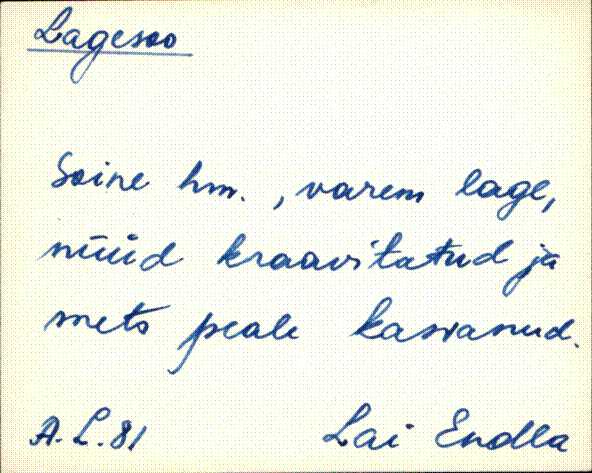 Lagesoo
Soine hm., varem lage,
nüüd kraavitatud ja
mets peale kasvanud.
A. L. 81 Lai Endla